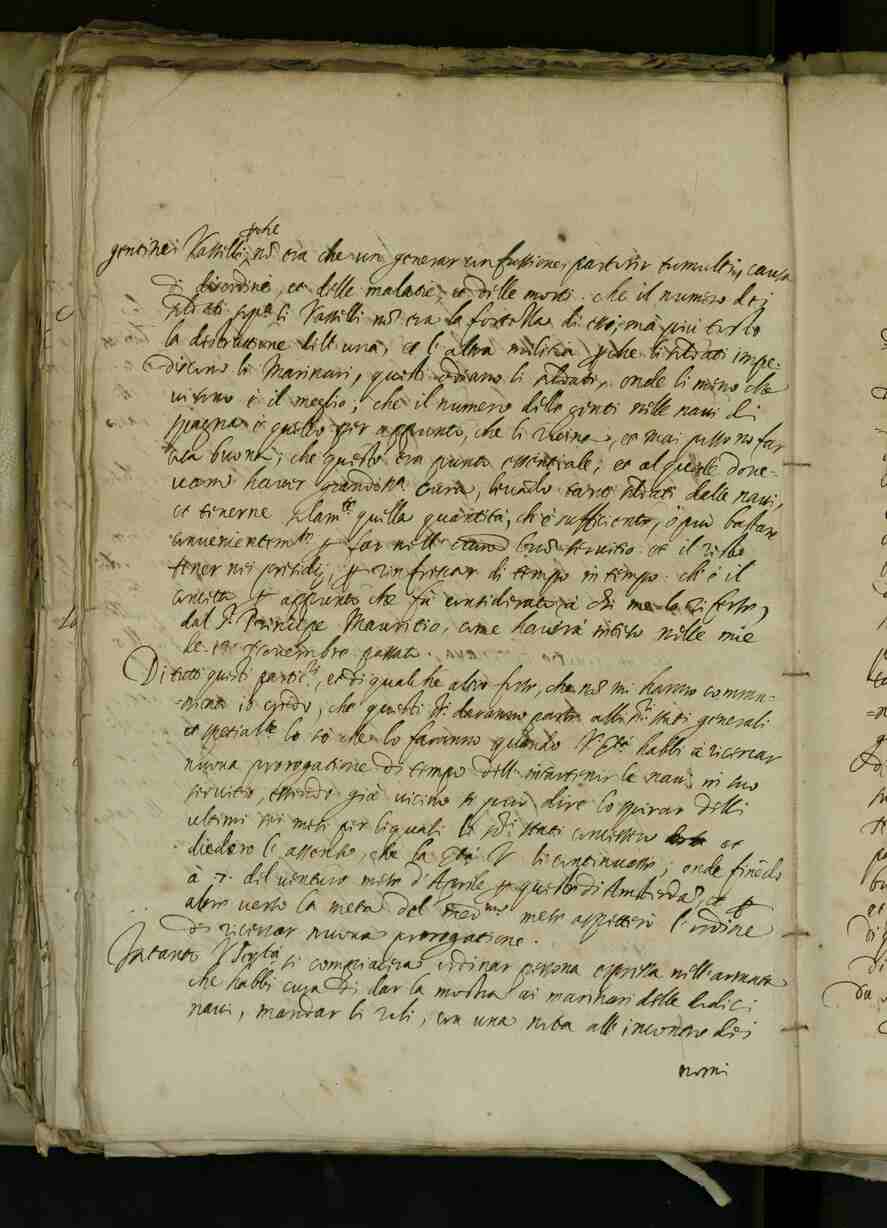 perche
gente nei Vasselli, nõ era che un generar confusione, partorir tumulti, causa
di disordini, et delle malatie, et delle morti. che il numero dei
soldati sopra li Vasselli nõ era la fortezza di essi, ma più tosto
la destruttione dell' una, et l' altra militia perche li soldati impe-
discono li Marinari, questi odiano li soldati, onde li meno che
vi sono è il meglio; che il numero delle genti nelle navi di
spagna è quello per appunto, che li rovina, et mai possono far
cosa buona; che questo era punto essentiale; et al quale dove-
vano haver grandissa cura, levando tanti soldati dalle navi,
et tenerne solamte quella quantità, ch' è sufficiente, ò può bastare
convenientemte per far nell' buõ servitio et il resto
tener nei presidij, per rinfrescar di tempo in tempo. ch' è il
concetto per appunto che fù considerato à chi me lo riferse,
dal Sr Principe Mauritio, come haverà inteso nelle mie
de novembre passato.
Di tutti questi particri, et di qualche altro forse, che nõ mi hanno commu-
nicato io credo, che questi Sri daranno parte alli Sri stati generali
et spetialte lo sò che lo faranno quando V Sertà habbi à ricercar
nuova prorogatione di tempo dell' intertenir le navi in suo
servitio, essendo già vicino si può dire lo spirar delli
ultimi sei mesi per li quali li Sri stati concessero et
diedero l' assenso, che la Sertà V li continuasse; onde finẽdo
à 7. del venturo mese d' Aprile per questo di Amsterdã, et per
altro verso la metà del medmo mese aspetterò l' ordine
di ricercar nuova prorogatione.
Intanto V Sertà si compiacerà ordinar persona espressa nell' armata
che habbi cura di dar la mostra ai marinari delle dodici
navi, mandar li roli, con una nota all' incontro dei
nomi